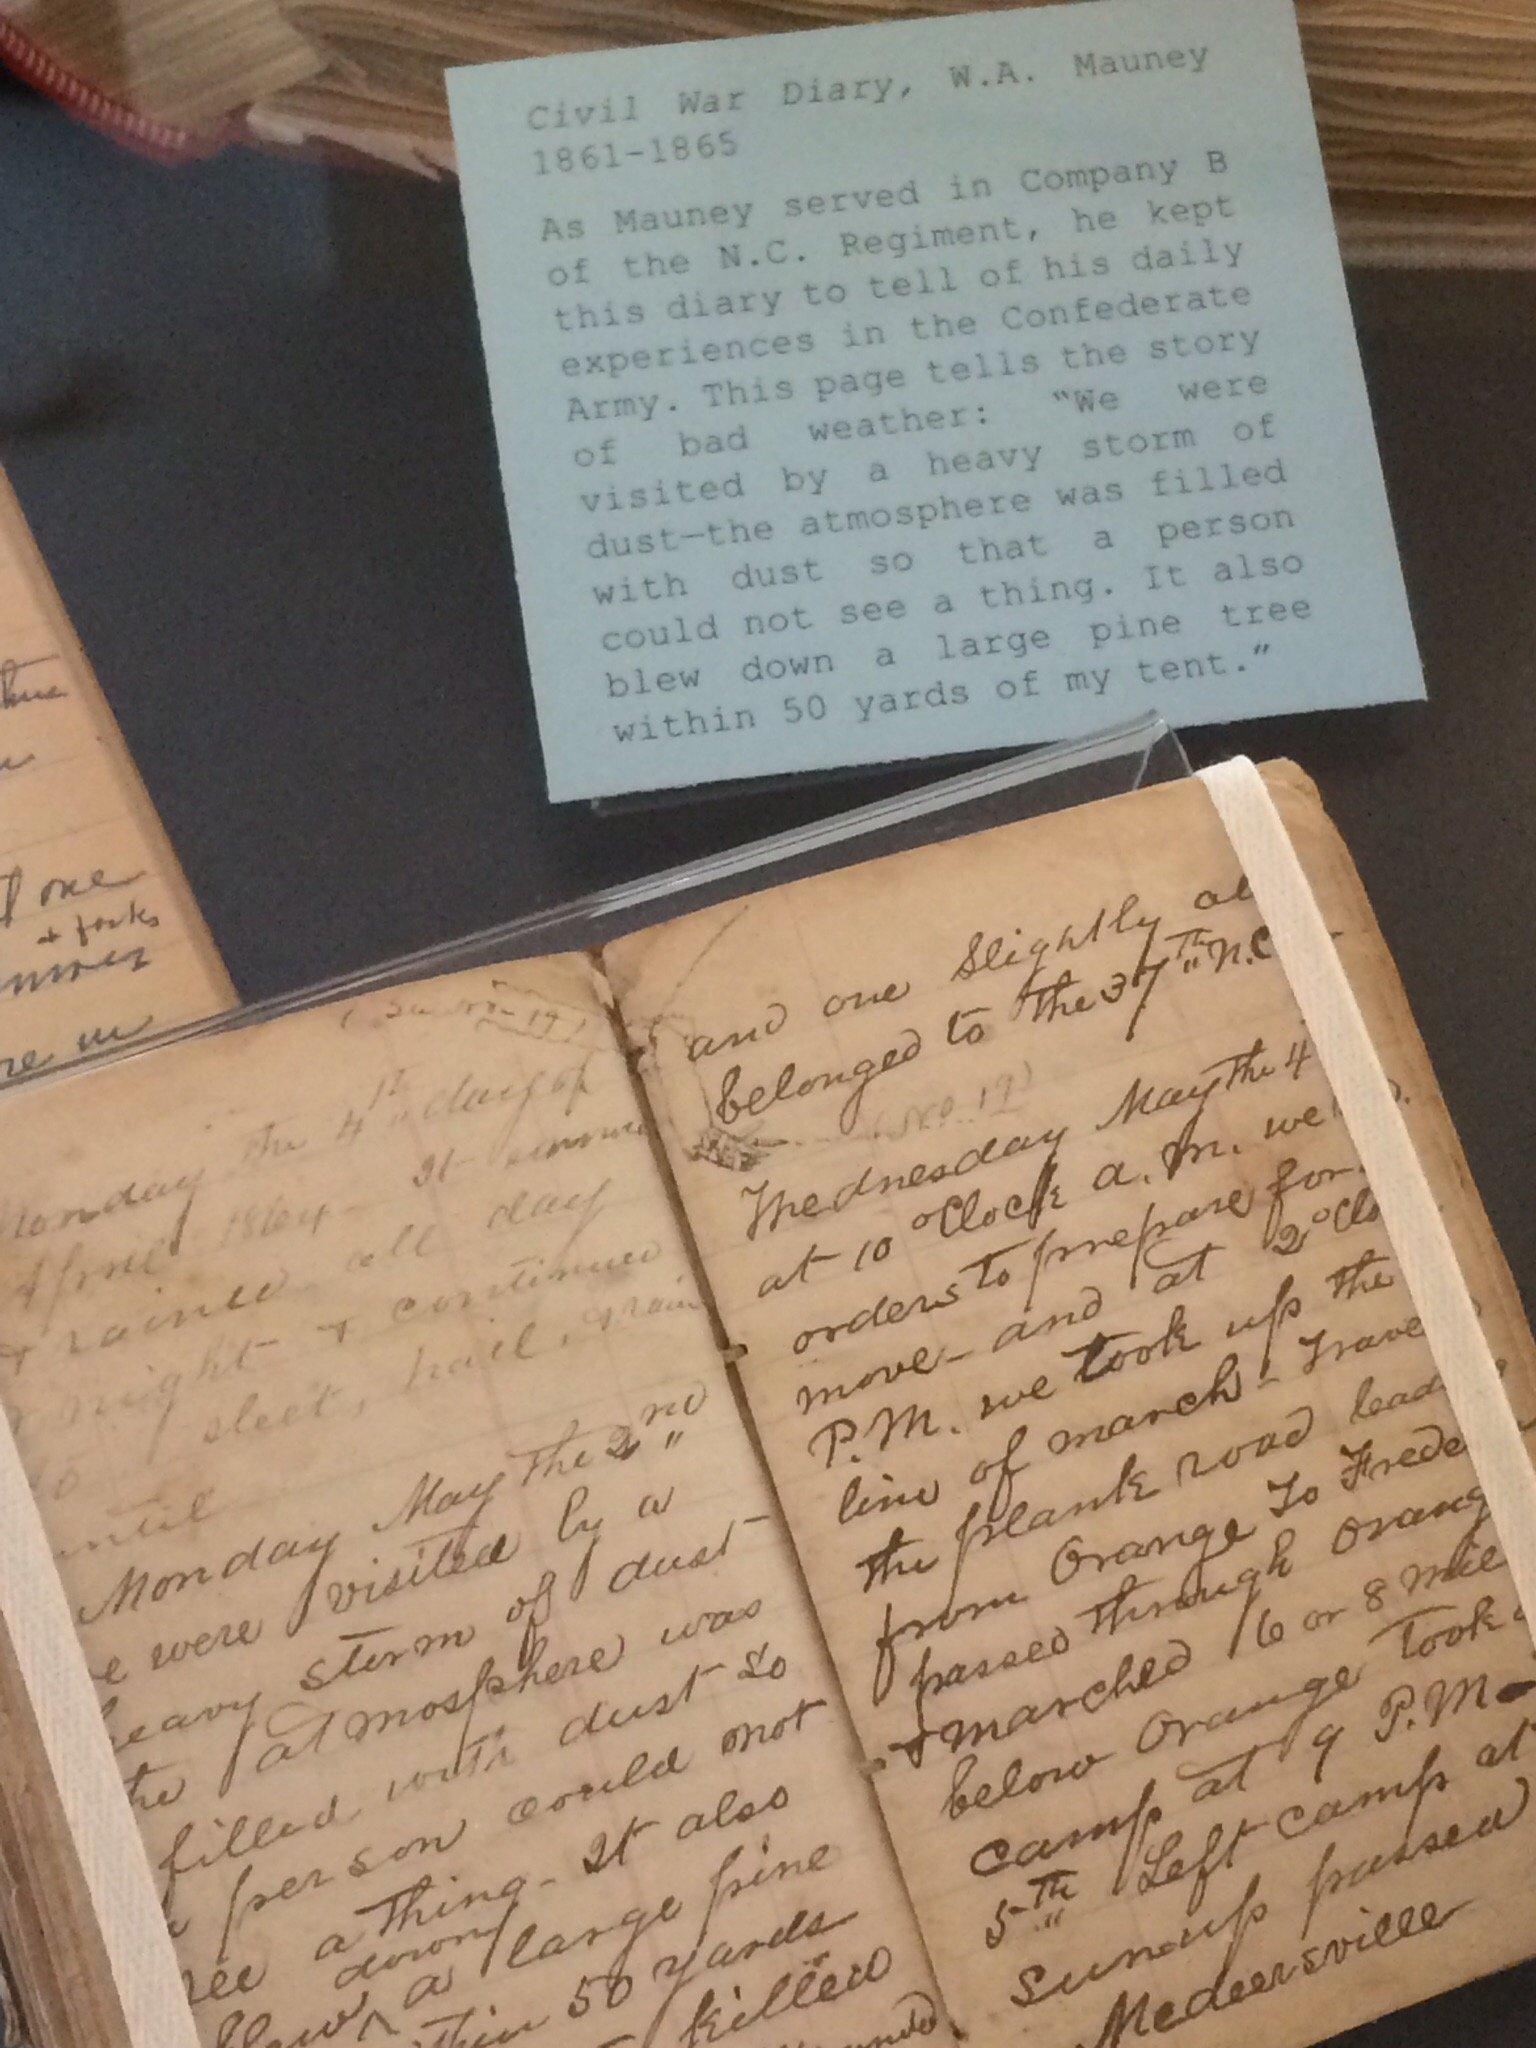 Civil War Diary, W.A. Mauney
1861-1865
As Mauney served in Company B
of the N.C. Regiment, he kept
this diary to tell of his daily
experiences in the Confederate
Army. This page tells the story
of bad weather: "We were
visited by a heavy storm of
dust—the atmosphere was filled
with dust so that a person
could not see a thing. It also
blew down a large pine tree
within 50 yards of my tent."
one
+ forks
Monday the 4th day of
April 1864 It
& rained all day
night & continued
sleet, hail, & rain
until
Monday May the 2nd
were visited by a
heavy storm of dust -
the atmosphere was
filled with dust so
person could not
see a thing - It also
blew down a large pine
within 50 yards
killed
and one slightly
belonged to the 37th N.C
Wednesday May the 4
at 10 oClock a.m. we
orders to prepare for
move - and at 2 oClo
P.M. we took up the
line of march - Trave
the plank road lead
from Orange To Frede
passed through Orang
& marched 6 or 8 mile
below Orange Took
camp at 9 P.M -
5th Left camp at
Sun-up passed
Medeersville